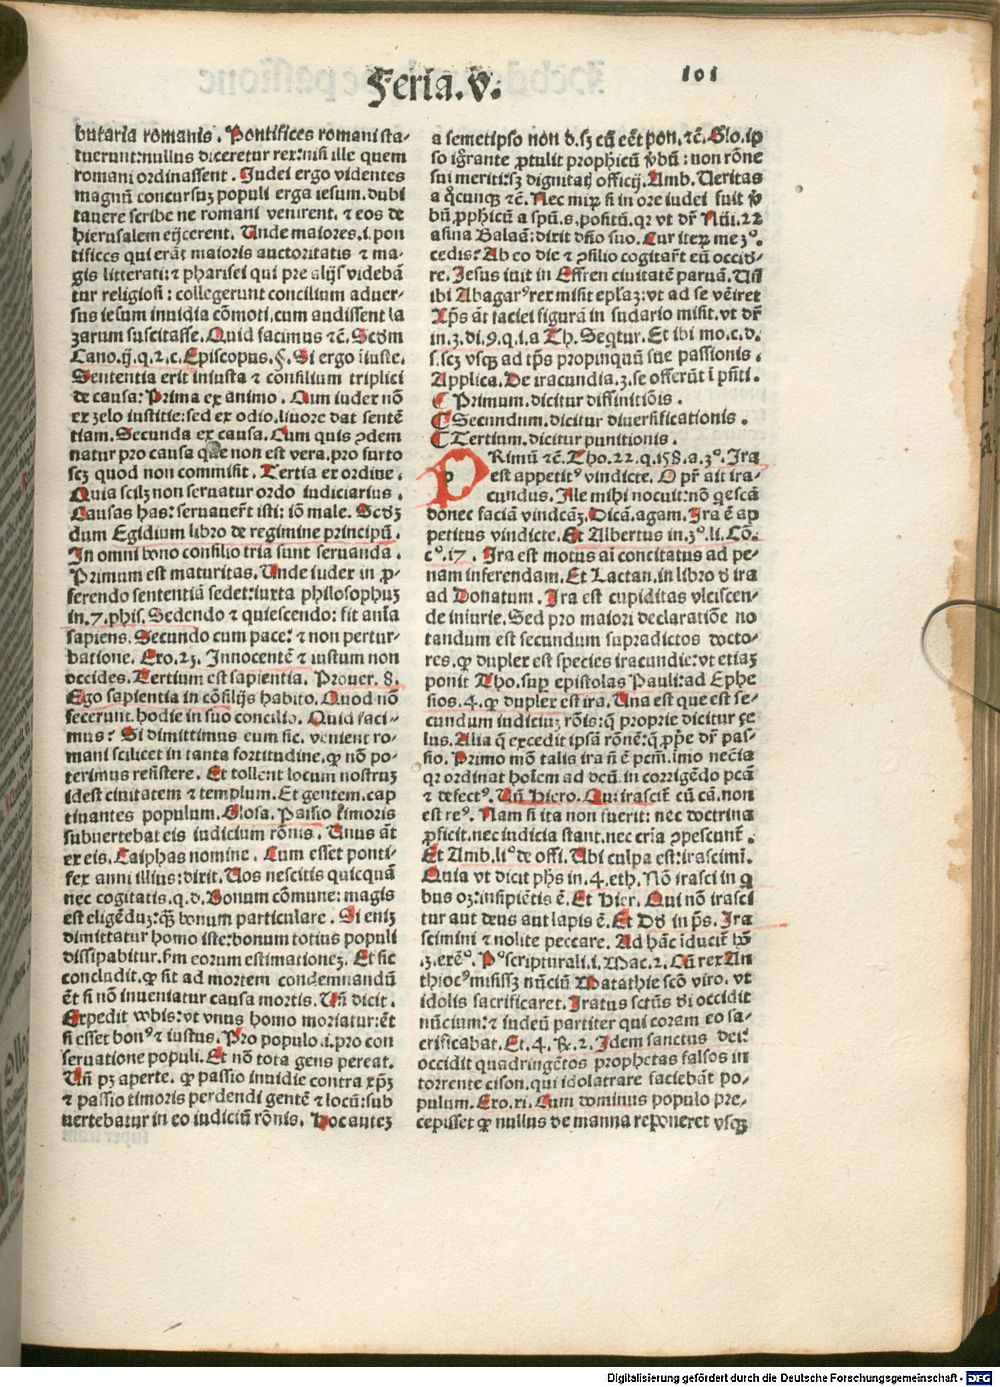 Feria.v.
101
butaria romanis. Pontifices romani sta-
tuerunt: nullus diceretur rex: nisi ille quem
romani ordinassent. Judei ergo videntes
magnū concursuz populi erga iesum. dubi
tauere scribe ne romani venirent. ⁊ eos de
hierusalem eijcerent. Unde maiores .i. pon
tifices qui erāt maioris auctoritatis ⁊ ma-
gis litterati: ⁊ pharisei qui pre alijs videbā
tur religiosi: collegerunt concilium aduer-
sus iesum inuidia cōmoti. cum audissent la
zarum suscitasse. Quid facimus ⁊c̄. Scđm
Cano. ij. q. 2. c. Episcopus. §. Si ergo iiuste.
Sententia erit iniusta ⁊ consilium triplici
de causa: Prima ex animo. Cum iudex nō
ex zelo iustitie: sed ex odio. liuore dat sentē
tiam. Secunda ex causa. Cum quis ↄdem
natur pro causa que non est vera. pro furto
scz quod non commisit. Tertia ex ordine.
Quia scilz non seruatur ordo iudiciarius.
Causas has: seruauer̄t isti: iō male. Scđz
dum Egidium libro de regimine principū.
In omni bono consilio tria sunt seruanda.
Primum est maturitas. Unde iudex in p̱-
ferendo sententiā sedet: iuxta philosophuz
in. 7. phis. Sedendo ⁊ quiescendo: fit anīa
sapiens. Secundo cum pace: ⁊ non pertur-
batione. Exo. 23. Innocentē ⁊ iustum non
occides. Tertium est sapientia. Prouer. 8.
Ego sapientia in cōsilijs habito. Quod nō
fecerunt hodie in suo concilio. Quid faci-
mus? Si dimittimus eum sic. venient ro-
mani scilicet in tanta fortitudine. ꝙ nō po-
terimus resistere. Et tollent locum nostruz
idest ciuitatem ⁊ templum. Et gentem. cap
tiuantes populum. Glosa. Passio timoris
subuertebat eis iudicium rōnis. Unus āt
ex eis. Caiphas nomine. Cum esset ponti-
fex anni illius: dixit. Uos nescitis quicquā
nec cogitatis. q. d. Bonum cōmune: magis
est eligēduz: q̄ꝫ bonum particulare. Si eniz
dimittatur homo iste: bonum totius populi
dissipabitur. fm eorum estimationez. Et sic
concludit. ꝙ sit ad mortem condemnandū
ēt si nō inueniatur causa mortis. Uñ dicit.
Expedit vobis: vt vnus homo moriatur: ēt
si esset bonꝰ ⁊ iustus. Pro populo .i. pro con
seruatione populi. Et nō tota gens pereat.
Uñ pꝫ aperte. ꝙ passio inuidie contra xp̄z
⁊ passio timoris perdendi gentē ⁊ locū: sub
uertebatur in eo iudiciū rōnis. Hoc autez
a semetipso non d. sꝫ cū eēt pon. ⁊c̄. Glo. ip
so iḡrante ꝓtulit prophicū v̄bū: non rōne
sui meriti: sꝫ dignitatꝭ officij. Amb. Ueritas
a q̊cunqꝫ ⁊c̄. Nec mirꝫ si in ore iudei fuit v̄
bū ꝓphicū a spū. s. positū. qꝛ vt dr̄ Nūi. 22
asina Balaā: dixit dño suo. Cur iterꝫ me 3ꝰ.
cedis? Ab eo die ⁊ ↄsilio cogitar̄t eū occidꝫ-
re. Jesus iuit in Effren ciuitatē paruā. Usi
ibi Abagarꝰ rex misit ep̄laz: vt ad se vēiret
Xp̄s āt faciei figurā in sudario misit. vt dr̄
in. 3. di. 9. q. i. a Th. Seqtur. Et ibi mo. c. d.
s. scꝫ vsqꝫ ad tp̄s propinquū sue passionis.
Applica. De iracundia. 3. se offerūt i p̄nti.
Primum. dicitur diffinitiōis.
Secundum. dicitur diuersificationis.
Tertium. dicitur punitionis.
PRimū ⁊c̄. Tho. 22. q. 158. a. 3ꝰ. Ira
est appetitꝰ vindicte. O pr̄ ait ira-
cundus. Ille mihi nocuit: nō q̇escā
donec faciā vindcāꝫ. Dicā. agam. Ira ē ap
petitus vindicte. Et Albertus in. 3ꝰ. li. Cō.
cꝰ. 17. Ira est motus ai concitatus ad pe-
nam inferendam. Et Lactan. in libro đ ira
ad Donatum. Ira est cupiditas vlciscen-
de iniurie. Sed pro maiori declaratiōe no
tandum est secundum supradictos docto-
res. ꝙ duplex est species iracundie: vt etiaz
ponit Tho. sup̱ epistolas Pauli: ad Ephe
sios. 4. ꝙ duplex est ira. Una est que est se-
cundum iudiciuꝫ rōis: q̄ proprie dicitur ze
lus. Alia q̄ excedit ipsā rōnē: q̄ ꝓp̄e dr̄ pas-
sio. Primo mō talis ira ñ ē pc̄m. imo necīa
qꝛ ordinat hoīem ad deū. in corrigēdo pcā
⁊ defectꝰ. Uñ Hiero. Qui irascit̄ cū cā. non
est reꝰ. Nam si ita non fuerit: nec doctrina
ꝓficit. nec iudicia stant. nec crīa ↄpescunt̄.
Et Amb. liꝰ de offi. Ubi culpa est: irascimī.
Quia vt dicit ph̄s in. 4. eth. Nō irasci in q
bus oꝫ: insipiētis ē. Et Hier. Qui nō irasci
tur aut deus aut lapis ē. Et Dđ in ps̄. Ira
scimini ⁊ nolite peccare. Ad hāc iducit̄ hō
.3. exēꝰ. Pꝰ scripturali. i. Mac. 2. Cū rex An
thiocꝰ misissꝫ nūciū Matathie scō viro. vt
idolis sacrificaret. Iratus sctūs đi occidit
nūcium: ⁊ iudeū partiter qui coram eo sa-
crificabat. Et. 4. ꝶ. 2. Idem sanctus dei:
occidit quadringētos prophetas falsos in
torrente cison. qui idolatrare faciebāt po-
pulum. Exo. xi. Cum dominus populo pre-
cepisset ꝙ nullus de manna reponeret vsqꝫ
Digitalisierung gefördert durch die Deutsche Forschungsgemeinschaft - DFG